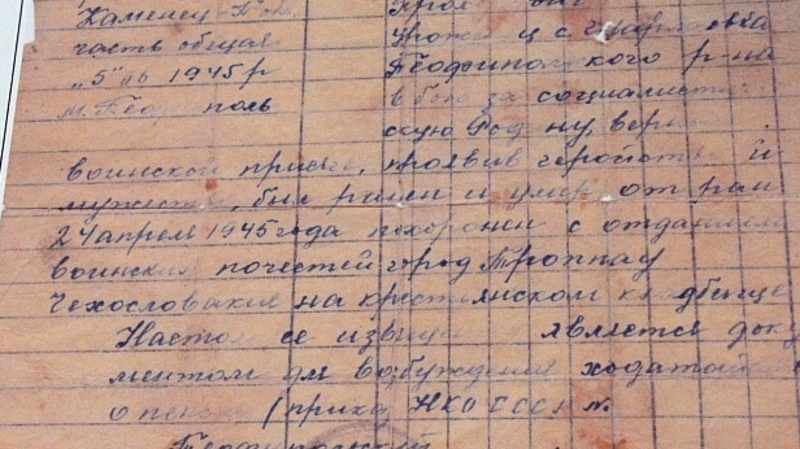 Каменец-Под.
часть общая
„5" 06 1945 р
м. Теофиполь
уроженец с.
Теофипольского р-на
в бою за социалистиче
скую Родину, верн
воинской присяге, проявив геройство и
мужество, был ранен и умер от ран
24 апреля 1945 года похоронен с отданием
воинских почестей город Троппау
Чехословакия на христианском кладбище
Настоящее извещение является доку
ментом для возбуждения ходатайства
о пенсии (приказ НКО СССР №
Теофипольский